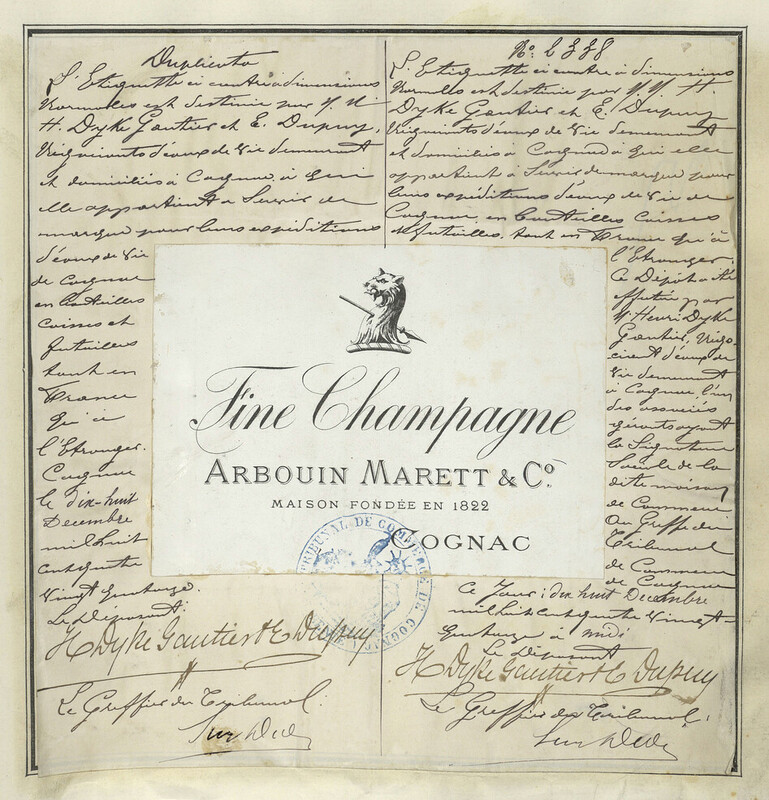 Duplicata
L'Etiquette ci contre à dimensions
Normales est destinée par M. M.
H. Dyke Gautier et E. Dupuy,
Négociants d'eaux de Vie demeurant
et domiciliés à Cognac, à qui
elle appartient à Servir de
marque pour leurs expéditions
d'eaux de Vie
de Cognac
en bouteilles
caisses et
futailles
tant en
France
qu'à
l'Etranger.
Cognac
le dix-huit
Decembre
mil huit
cent quatre
Vingt Quatorze.
Le Déposant:
H Dyke Gautier & E Dupuy
Le Greffier du Tribunal:
No. 2338
L'Etiquette ci contre à dimensions
Normales est destinée par M. M. H.
Dyke Gautier et E. Dupuy
Négociants d'eaux de Vie demeurant
et domiciliés à Cognac à qui elle
appartient à Servir de marque pour
leurs expéditions d'eaux de Vie de
Cognac, en bouteilles Caisses
et futailles, tant en France qu'à
l'Etranger.
Ce Dépôt a été
effectué par
M. Henri Dyke
Gautier, Négo-
ciant d'eaux de
Vie demeurant
à Cognac, l'un
des associés
gérants ayant
la Signature
Sociale de la
dite maison
de Commerce
Au Greffe du
Tribunal
de Commerce
de Cognac
Ce Jour: dix huit Decembre
mil huit cent quatre Vingt-
Quatorze à midi
Le Déposant
H Dyke Gautier & E Dupuy
Le Greffier du Tribunal:
Fine Champagne
ARBOUIN MARETT & Co.
MAISON FONDÉE EN 1822
COGNAC
TRIBUNAL DE COMMERCE DE COGNAC